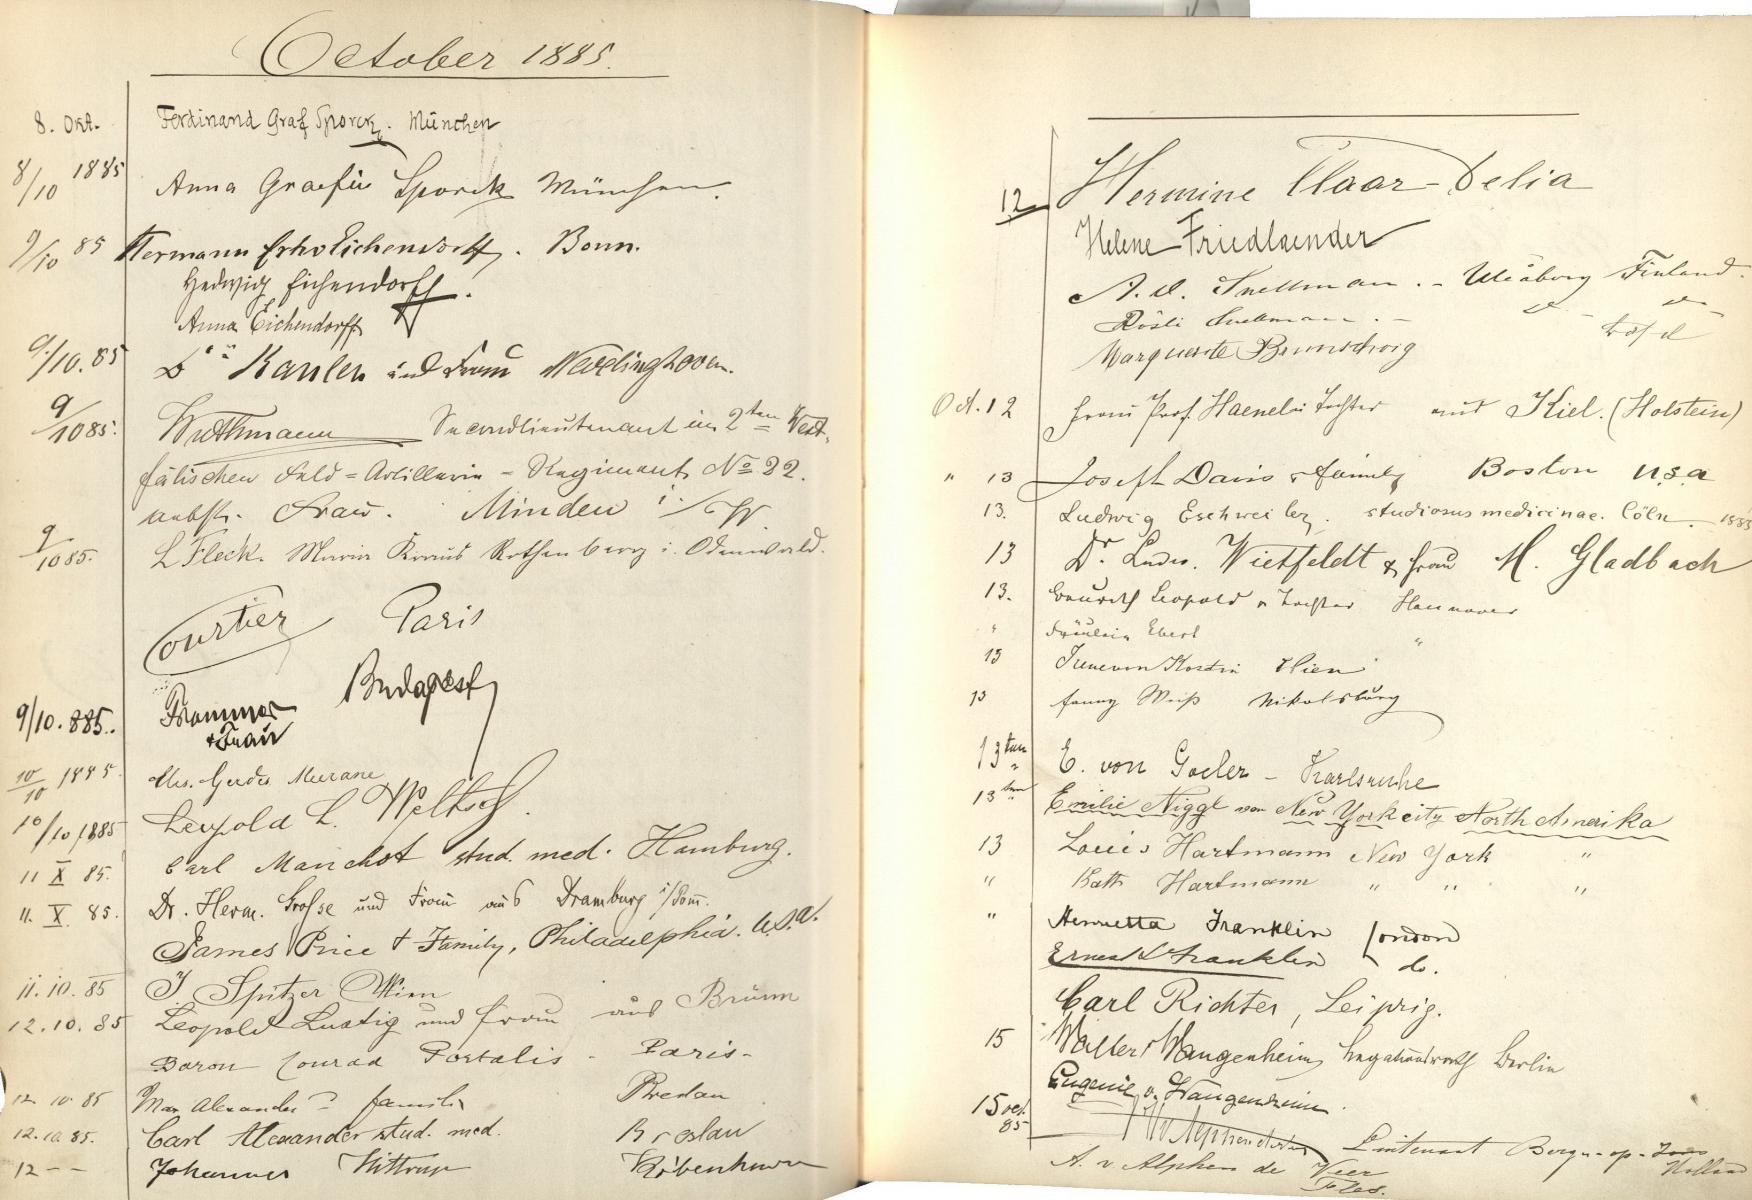 October 1885.
8. Okt. Ferdinand Graf Sporck. München
8/10 1885 Anna Graefin Sporck München.
9/10 85 Hermann Frhr Eichendorff. Bonn.
Hedwig Eichendorff.
Anna Eichendorff
9./10.85 Dr Kaulen und Frau Wevelinghoven.
9/10 85. Wuthmann Secondlieutenant im 2ten West-
fälischen Feld=Artillerie-Regiment No 22.
nebst Frau. Minden i/W.
9/10 85. L Fleck. Maria Rothenberg i. Odenwald.
Courtier Paris
Budapest
9/10.885. Frommer
+ Frau
10/10 1885 Meerane
10/10 1885 Leopold L. Weltsch.
11 X 85. Carl Manchot stud. med. Hamburg.
11. X. 85. Dr. Herm. Grosse und Frau aus Dramburg i/Pom.
James Price & Family, Philadelphia. U.S.A.
11.10.85 J Spitzer Wien
12.10.85 Leopold Lustig und Frau aus Brünn
Baron Conrad Portalis - Paris-
12 10 85 Max Alexander Familie Breslau
12.10.85. Carl Alexander stud. med. Breslau
12 - - Johannes Hittrup Köbenhavn
12 Hermine Claar-Delia
Helene Friedlaender
A. W. Snellman. - Uleåborg Finland.
Rösli Snellman. -
Marguerite Brunschvig
Oct. 12 Frau Prof. Haenel u Tochter aus Kiel. (Holstein)
" 13 Joseph Davis & family Boston U.S.A
13. Ludwig Eschweiler. studiosus medicinae. Cöln. 1885
13 Dr. Ludw. Wietfeldt & Frau M. Gladbach
13. Leopold u Tochter Hannover
" Fräulein Ebert "
13 Wien
13 Fanny Weiß Nikolsburg
13ten E. von Goeler - Karlsruhe
13ten Emilie Niggl von New York city North Amerika
13 Louis Hartmann New York "
" Kath Hartmann " " "
" Henrietta Franklin London
Ernest L Franklin do.
Carl Richter, Leipzig.
15 Walter v Wangenheim Legationsrath Berlin
Eugenie v. Wangenheim.
15 oct. 85 Lieutenant Bergen-op-Zoom
Holland
A. v Alphen de Veer